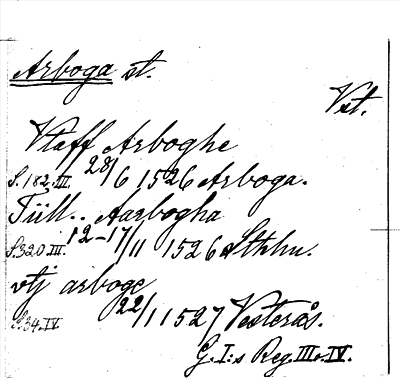 Arboga st.
Vst.
Vtaff Arboghe
S. 182. III. 28/6 1526 Arboga.
Till.. Aarbogha
S. 320. III. 12-17/11 1526 Sthlm.
vtj arboge
S. 34. IV. 22/1 1527 Vesterås.
G. I:s Reg. III o. IV.